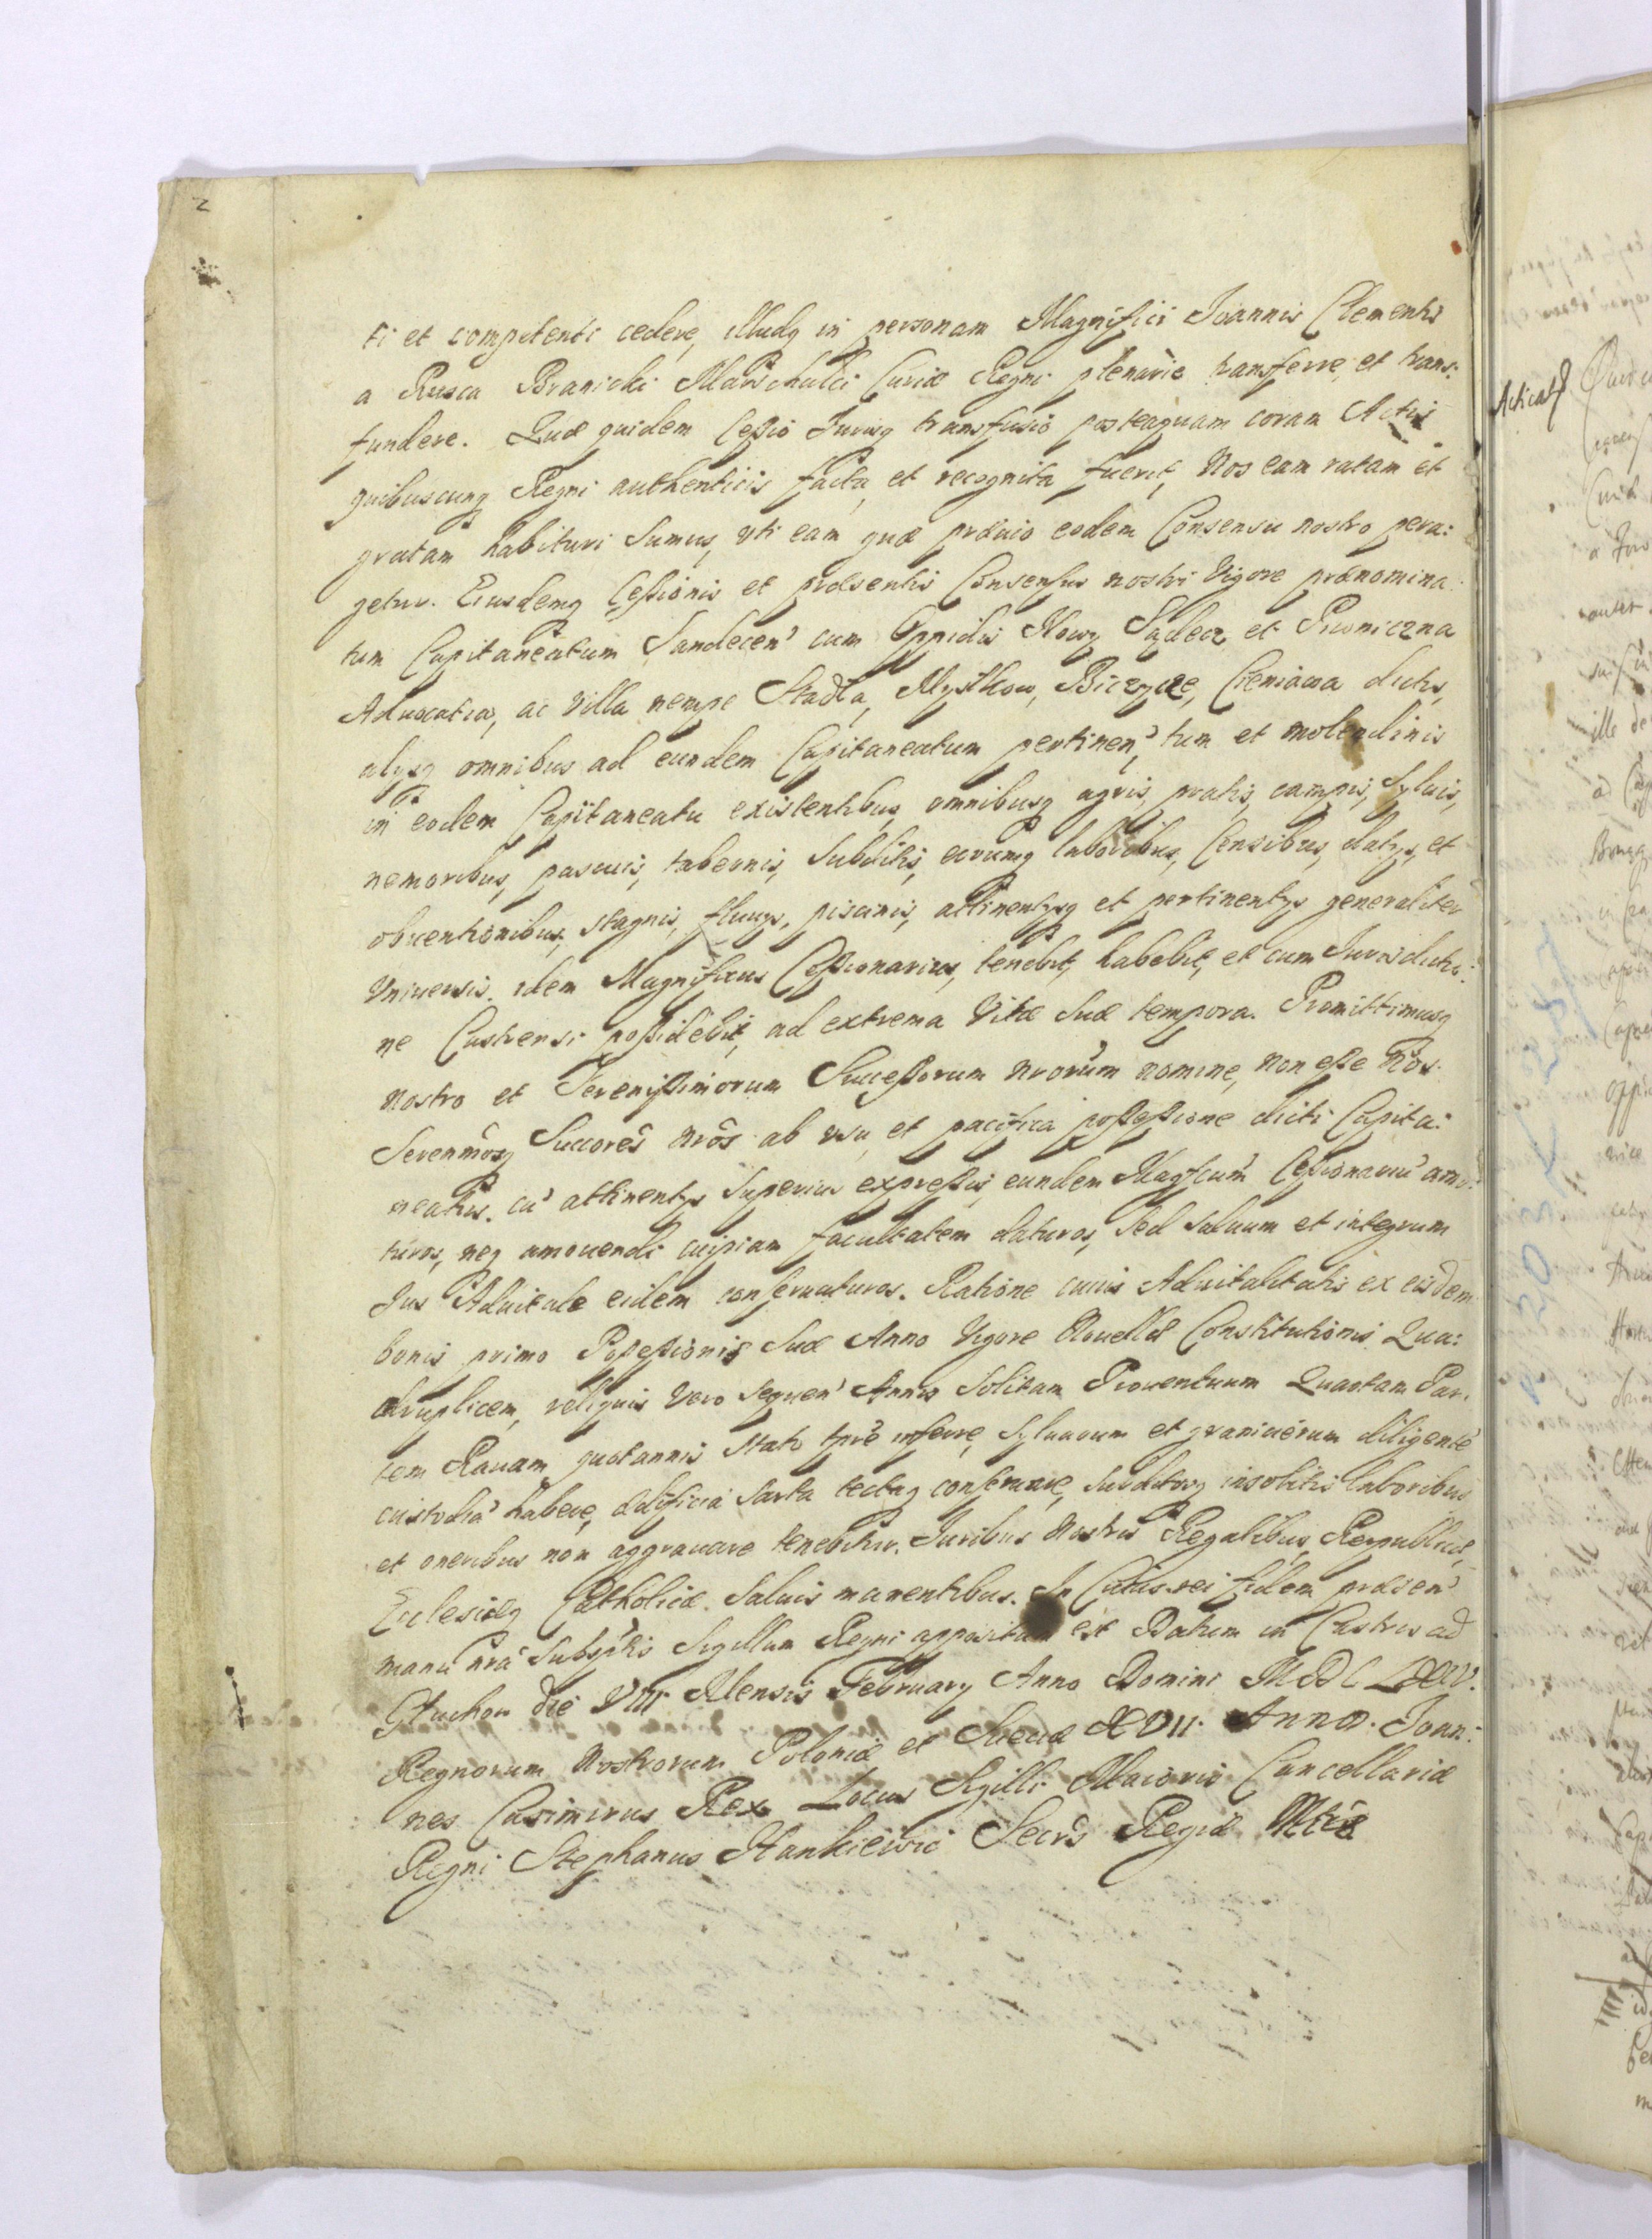 2
ti et competenti cedere, illudq in personam Magnifici Joannis Clementis
a Rusca Branicki Marschalci Curiæ Regni plenarie transferre, et trans:
fundere. Quæ quidem Cessio Jurisq transfusio posteaquam coram Actis
quibuscunq Regni authenticis facta, et recognita fuerit, Nos eam ratam et
gratam habituri Sumus, uti eam quæ prævio eodem Consensu nostro pera:
getur. Eiusdemq Cessionis et præsentis Consensus nostri Vigore prænomina:
tum Capitaneatum Sandecen' cum Oppidis Nowy Sądecz et Piwniczna
Advocatia, ac Villa nempe Stadła, Mystkow, Biczyce, Cieniawa dictis,
alysq omnibus ad eundem Capitaneatum pertinen', tum et molendinis
in eodem Capitaneatu existentibus, omnibusq agris, pratis, campis, Sylvis,
nemoribus, pascuis, tabernis, Subditis, eorumq laboribus, Censibus, datys, et
obventionibus, stagnis, fluuys, piscinis, attinentysq et pertinentys generaliter
Universis. idem Magnificus Cessionarius, tenebit, habebit, et cum Jurisdictio:
ne Castrensi possidebit, ad extrema Vitæ Suæ tempora. Promittimusq
Nostro et Serenissimorum Successorum nrorum nomine, non esse Nos.
Serenmosq Succores nros ab usu, et pacifica possessione dicti Capita:
neatus. cu' attinentys Superius expressis, eundem Magficum Cessionariu' amo:
turos, neq amovendi cuipiam facultatem daturos, Sed Salvum et integrum
Jus Advitale eidem conservaturos. Ratione cuius Advitalitatis ex eisdem
bonis primo Possessionis Suæ Anno Vigore Novellæ Constitutionis Qua:
druplicem, reliquis Vero Sequen' Annis Solitam Proventuum Quartam Par:
tem Ravam quotannis Stato tpre inferre, Sylvarum et granicierum diligente'
custodia' habere, ædificia Sarta tectaq conservare, Subditosq insolitis laboribus
et oneribus non aggravare tenebitur. Juribus Nostris Regalibus, Reipublicæ,
Ecclesiæq Catholicæ. Salvis manentibus. In Cuius rei fidem præsen'
manu nra Subsptis Sigillum Regni appositum est Datum in Castris ad
Gluchow die VIII Mensis February Anno Domini MDCLXIV.
Regnorum Nostrorum Poloniæ et Sueciæ XVII. Anno. Joan:
nes Casimirus Rex Locus Sigilli Maioris Cancellariæ
Regni Stephanus Hankiewic Secrs Regiæ Mtis
Acticat